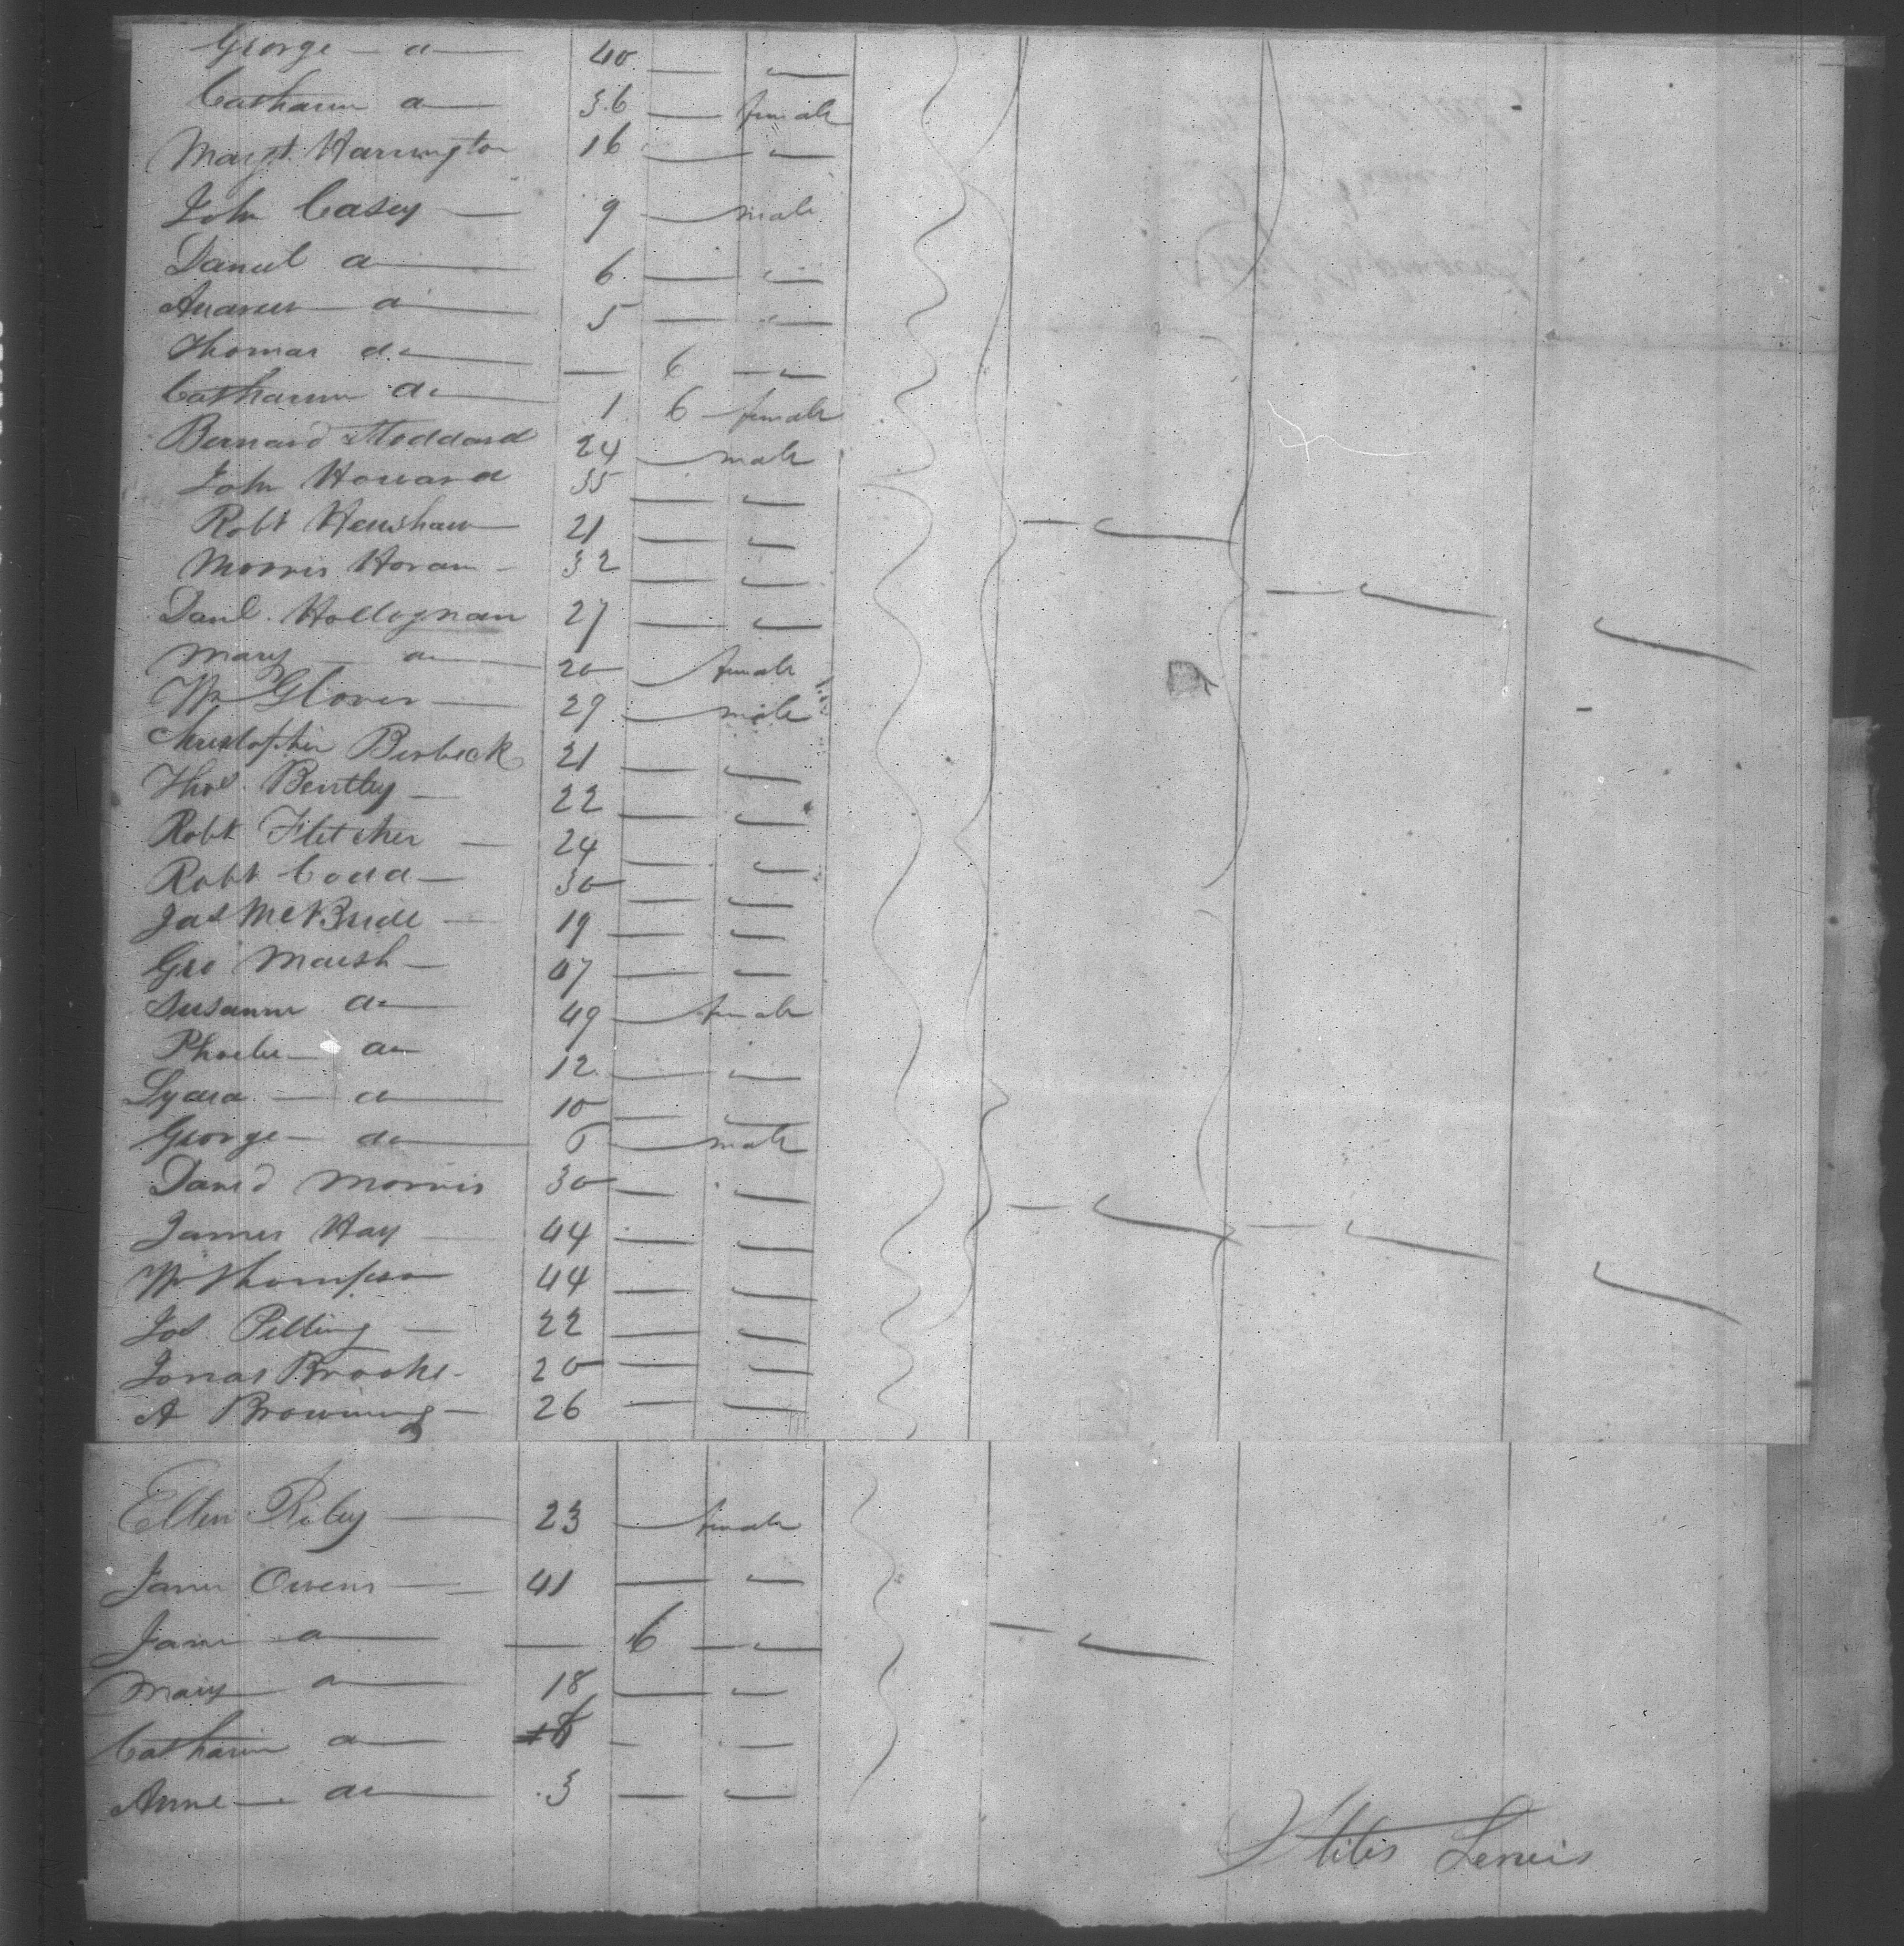 George — do — 40 — "
Catharine do — 36 — female
Margt. Harrington 16 — "
John Casey — 9 — male
Daniel do — 6 — "
Andrew do — 5 — "
Thomas do — — 6 — "
Catharine do — 1 6 female
Bernard Stoddard 24 — male
John Howard 35 — "
Robt Henshaw 21 — "
Morris Horan — 32 — "
Danl. 27 — "
Mary — do — 20 — female
Wm Glover — 29 — male
Christopher Birbeck 21 — "
Thos. Bentley — 22 — "
Robt Fletcher — 24 — "
Robt 30 — "
Jas McBride — 19 — "
Geo Marsh — 47 — "
Susanne do — 49 — female
Phoebe — do 12 — "
Lydia — do — 10 — "
George — do — 6 — male
David Morris 30 — "
James Hay — 44 — "
Wm Thompson 44 — "
Jos. Pilling — 22 — "
Jonas Brooks — 20 — "
A Browning — 26 — "
Ellen Riley — 23 — female
Jane Owens — 41 — "
Jane do — — 6 — "
Mary do — 18 — "
Catharine do — — "
Anne — do — 3 — "
Stites Lewis